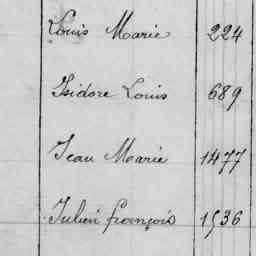 Louis Marie 224
Isidore Louis 689
Jean Marie 1477
Julien françois 1536